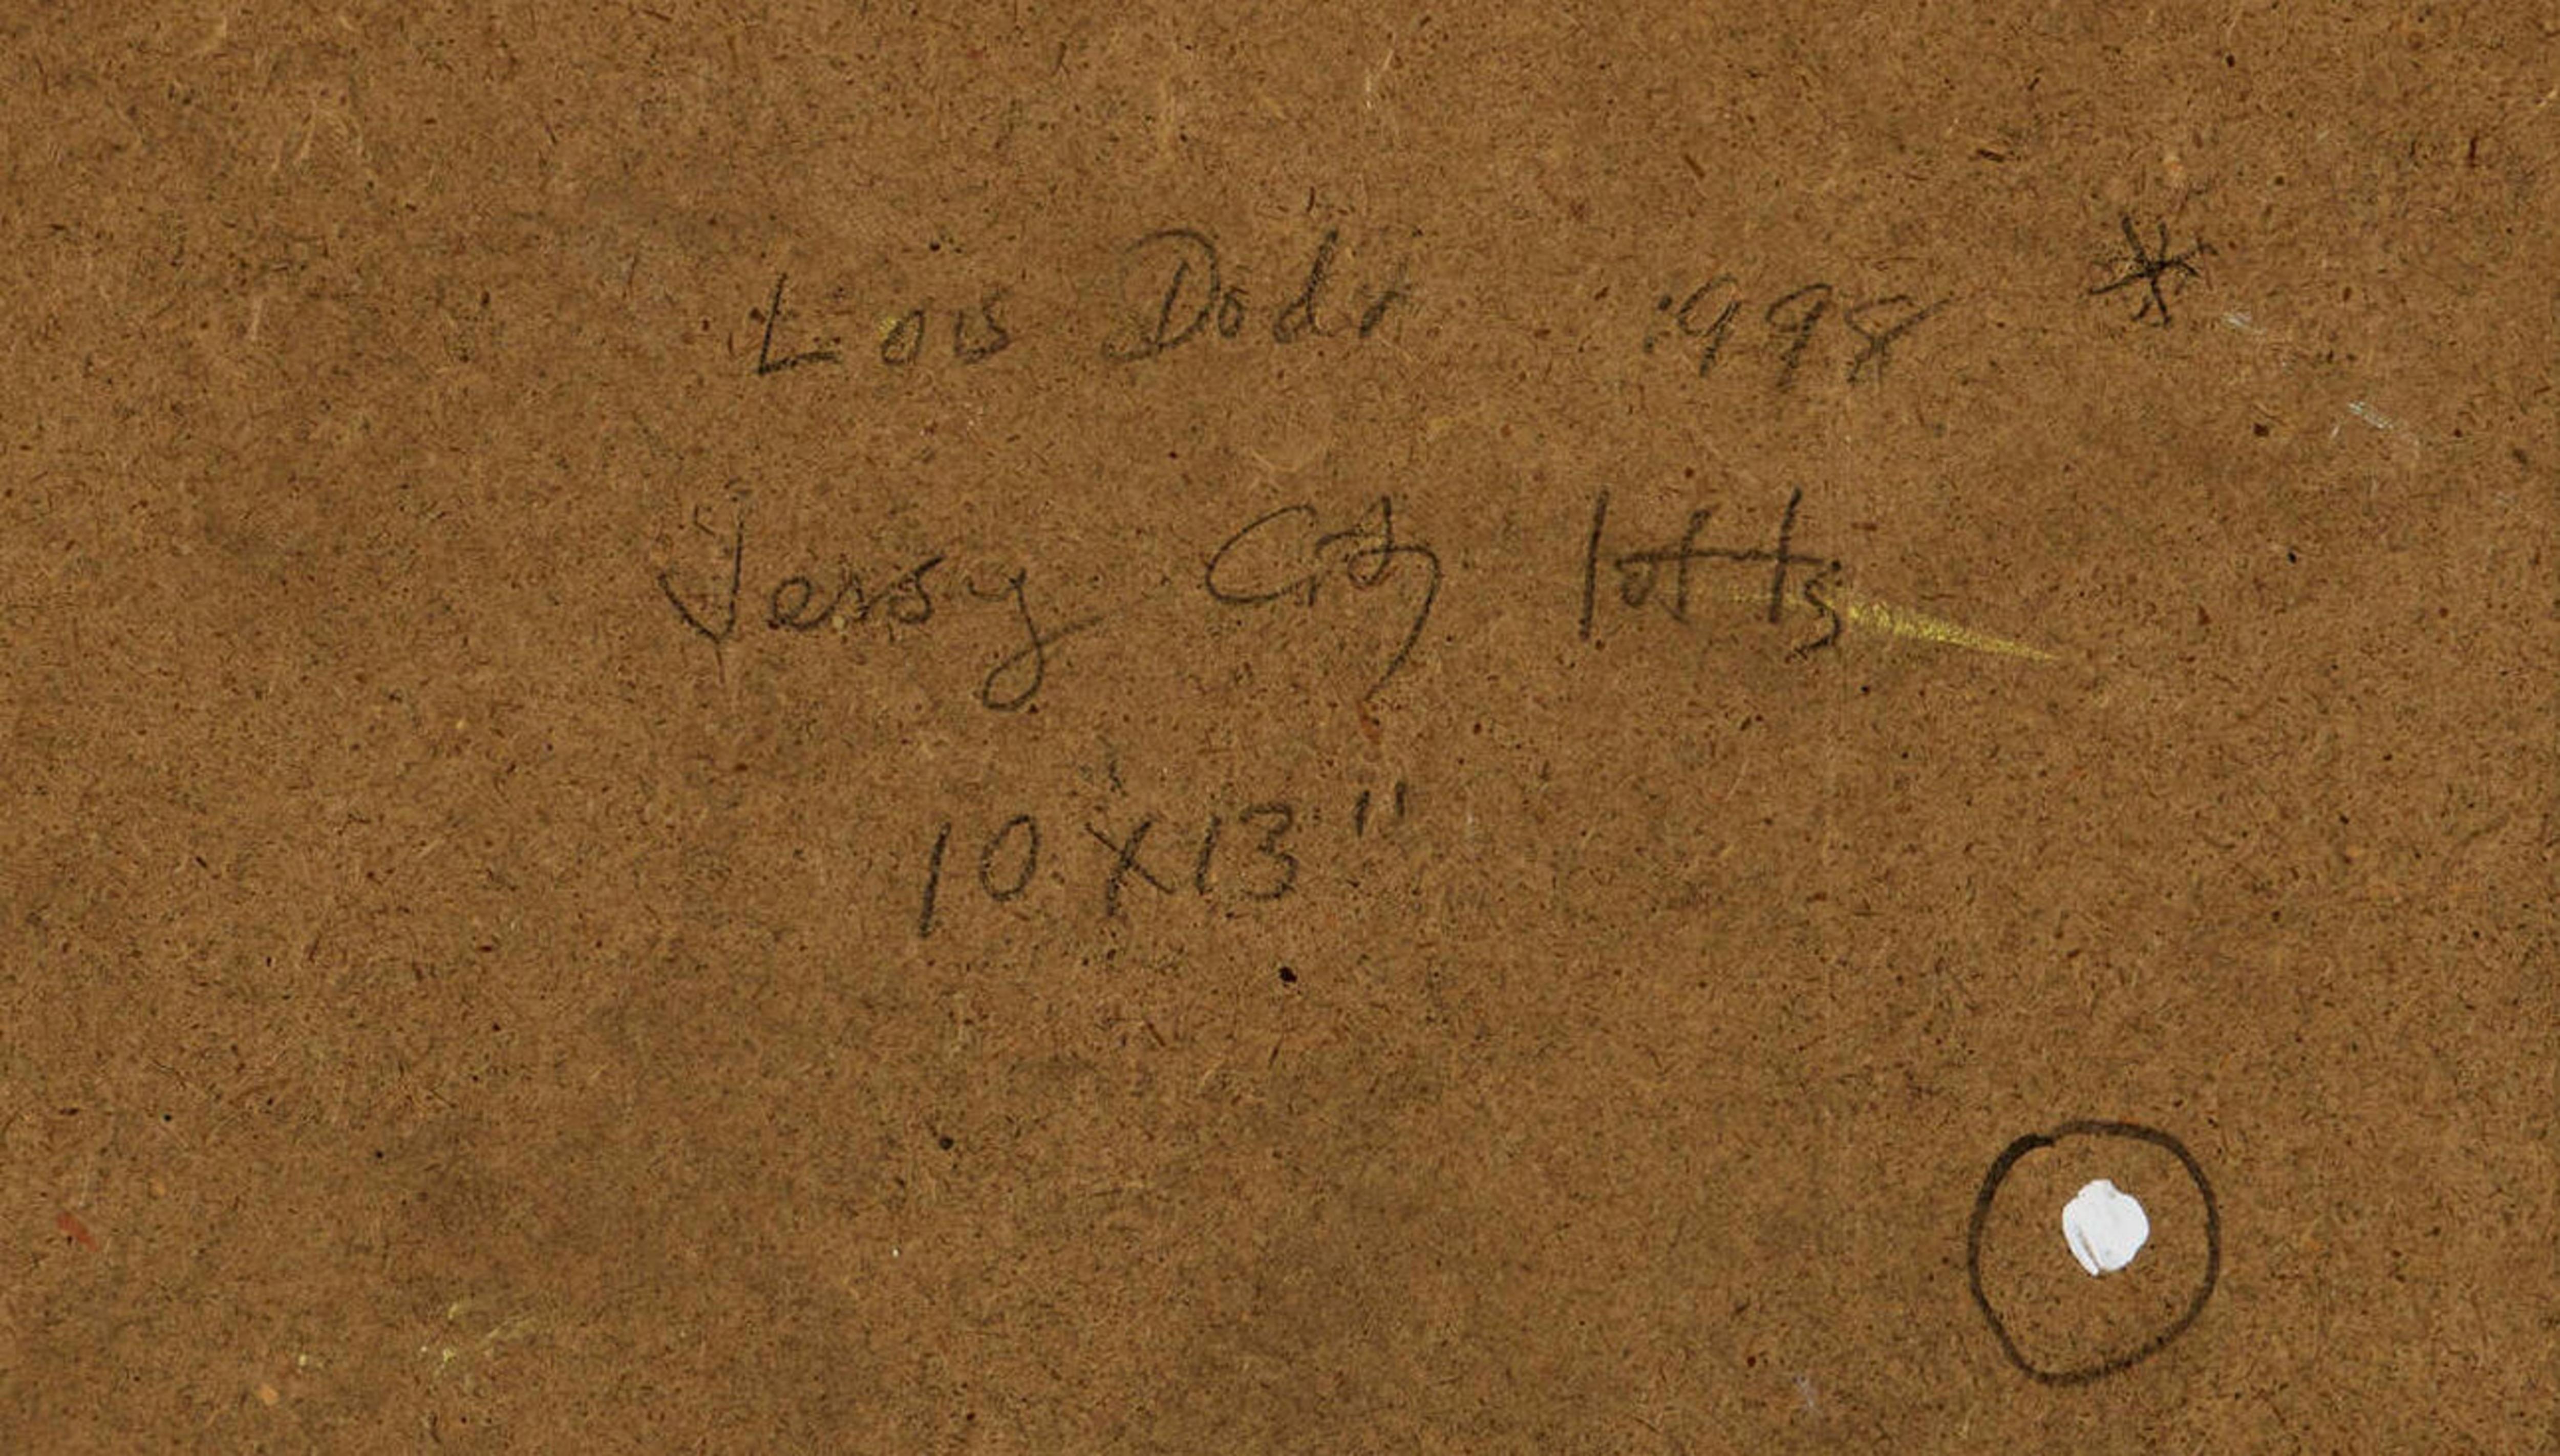 Lois Dodd 1998 *
Jersey City
10 x 13"